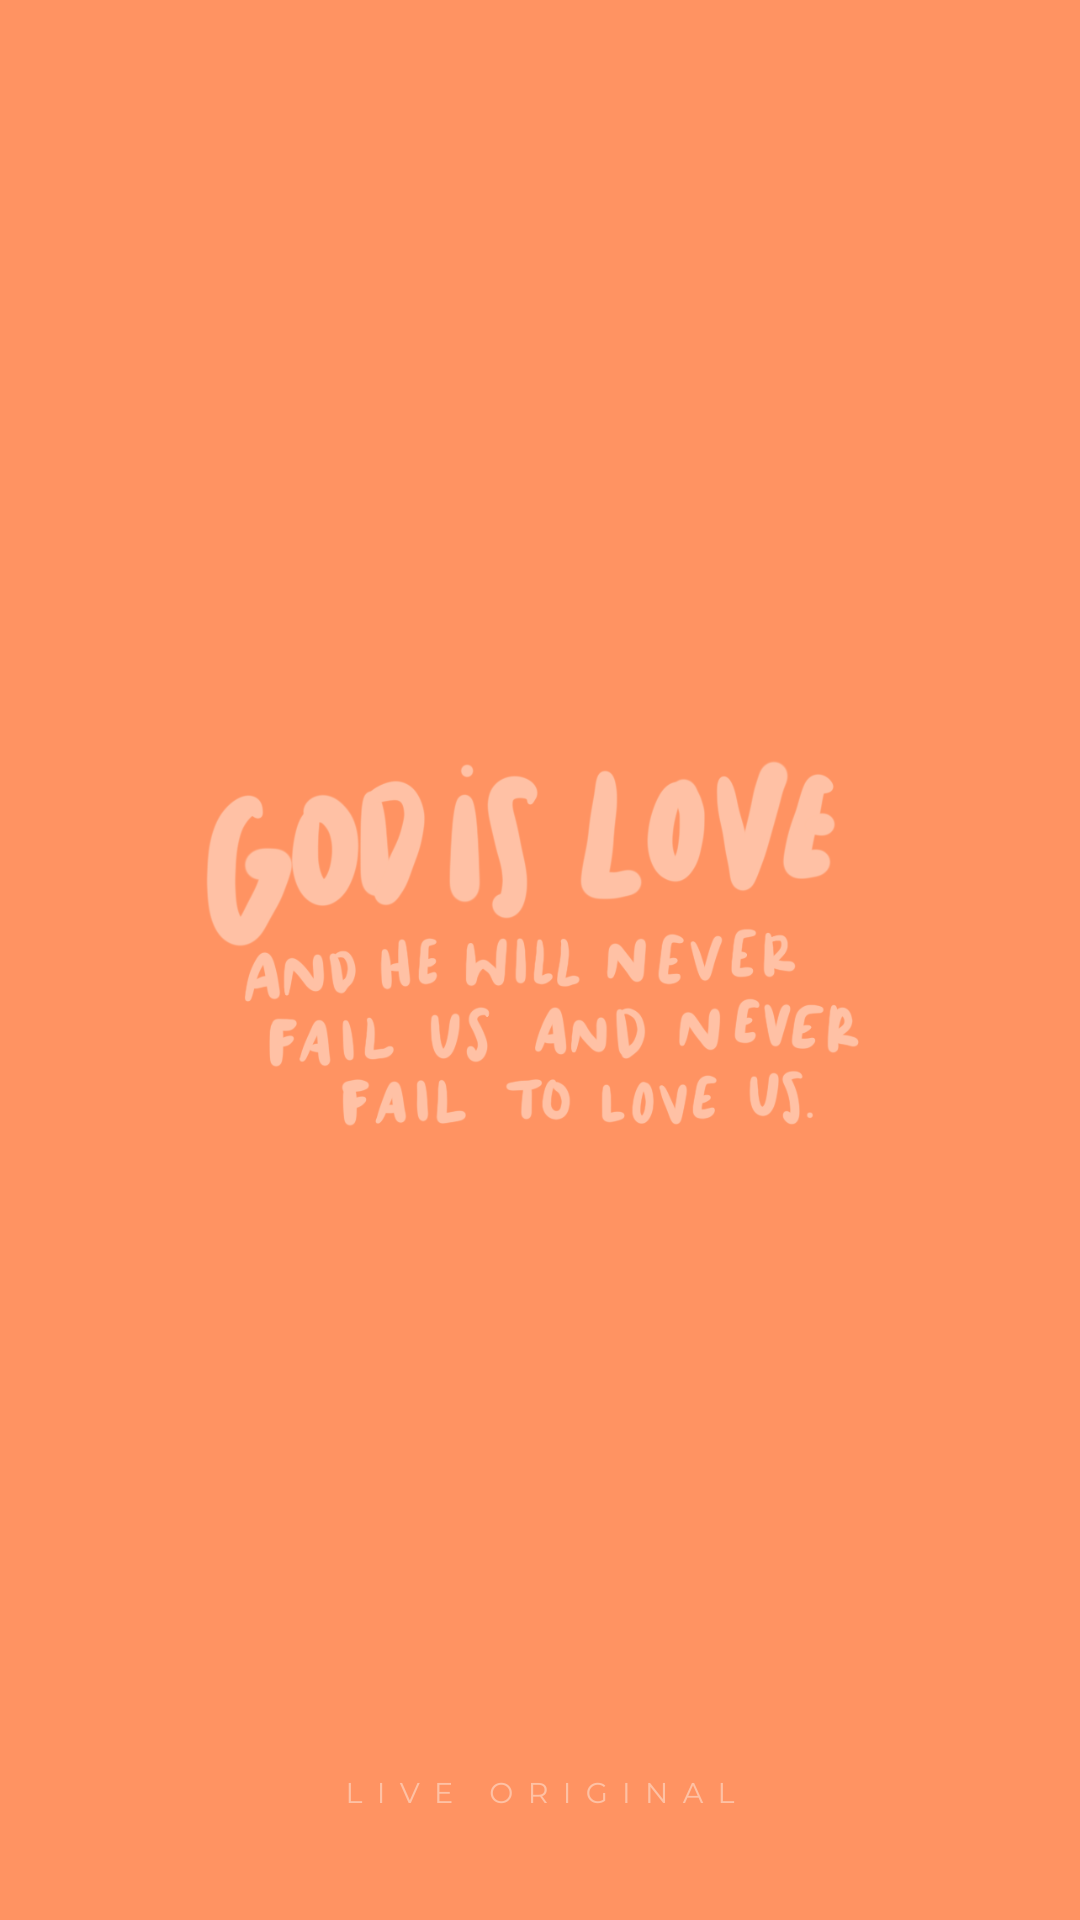 GOD iS LOVE
AND HE WILL NEVER
FAIL US AND NEVER
FAIL TO LOVE US.
LIVE ORIGINAL